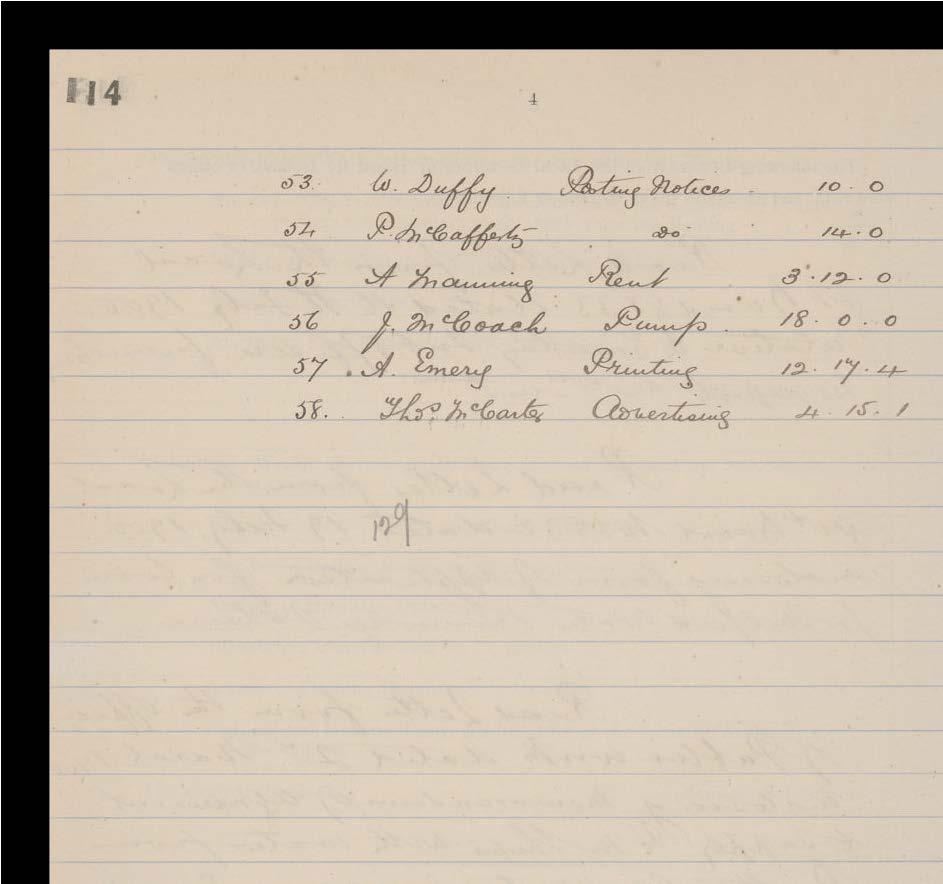 114
4
53. W. Duffy Posting Notices 10. 0
54 P. McCafferty do 14. 0
55 A Manning Rent 3. 12. 0
56 J. McCoach Pump. 18. 0. 0
57 A. Emery Printing 12. 17. 4
58. Thos. McCarter Advertising 4. 15. 1
129